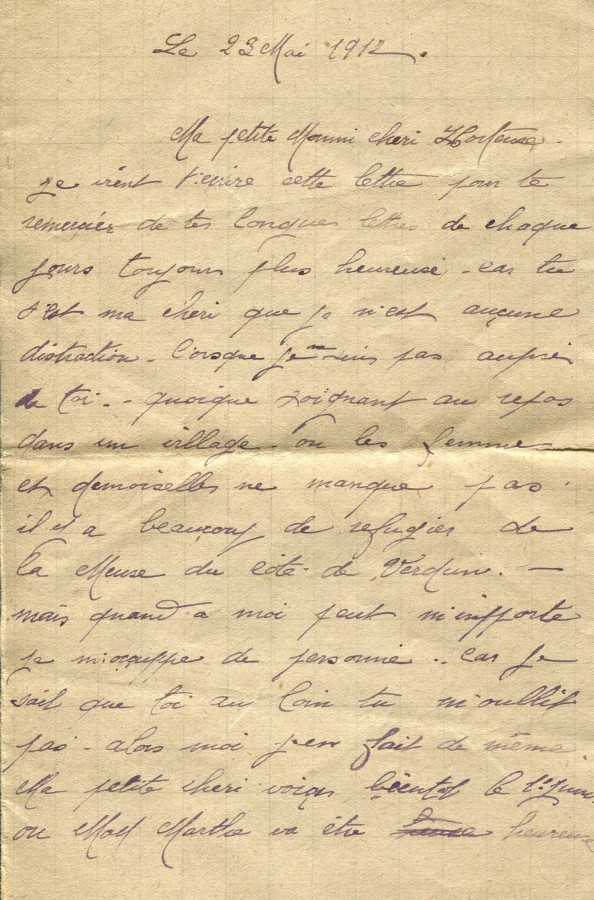 Le 23 Mai 1917.
Ma petite Mounni cheri Hortense.
Je vient t'ecrire cette lettre pour te
remercier de tes longues lettres de chaque
jours toujours plus heureuse - car tu
s'est ma cheri que je n'est aucune
distraction - lorsque je suis pas auprès
de toi. - quoique soignant au repos
dans un village - ou les femmes
et demoiselles ne manque pas.
il y a beaucoup de refugiés de
la Meuse du coté de Verdun. -
mais quand a moi peut m'importe
je m'occuppe de personne .. car je
sait que toi au loin tu m'oublit
pas - alors moi j'en fait de même
Ma petite cheri voiçi bientot le 1er Juin
ou Mad Marthe va être heureuse